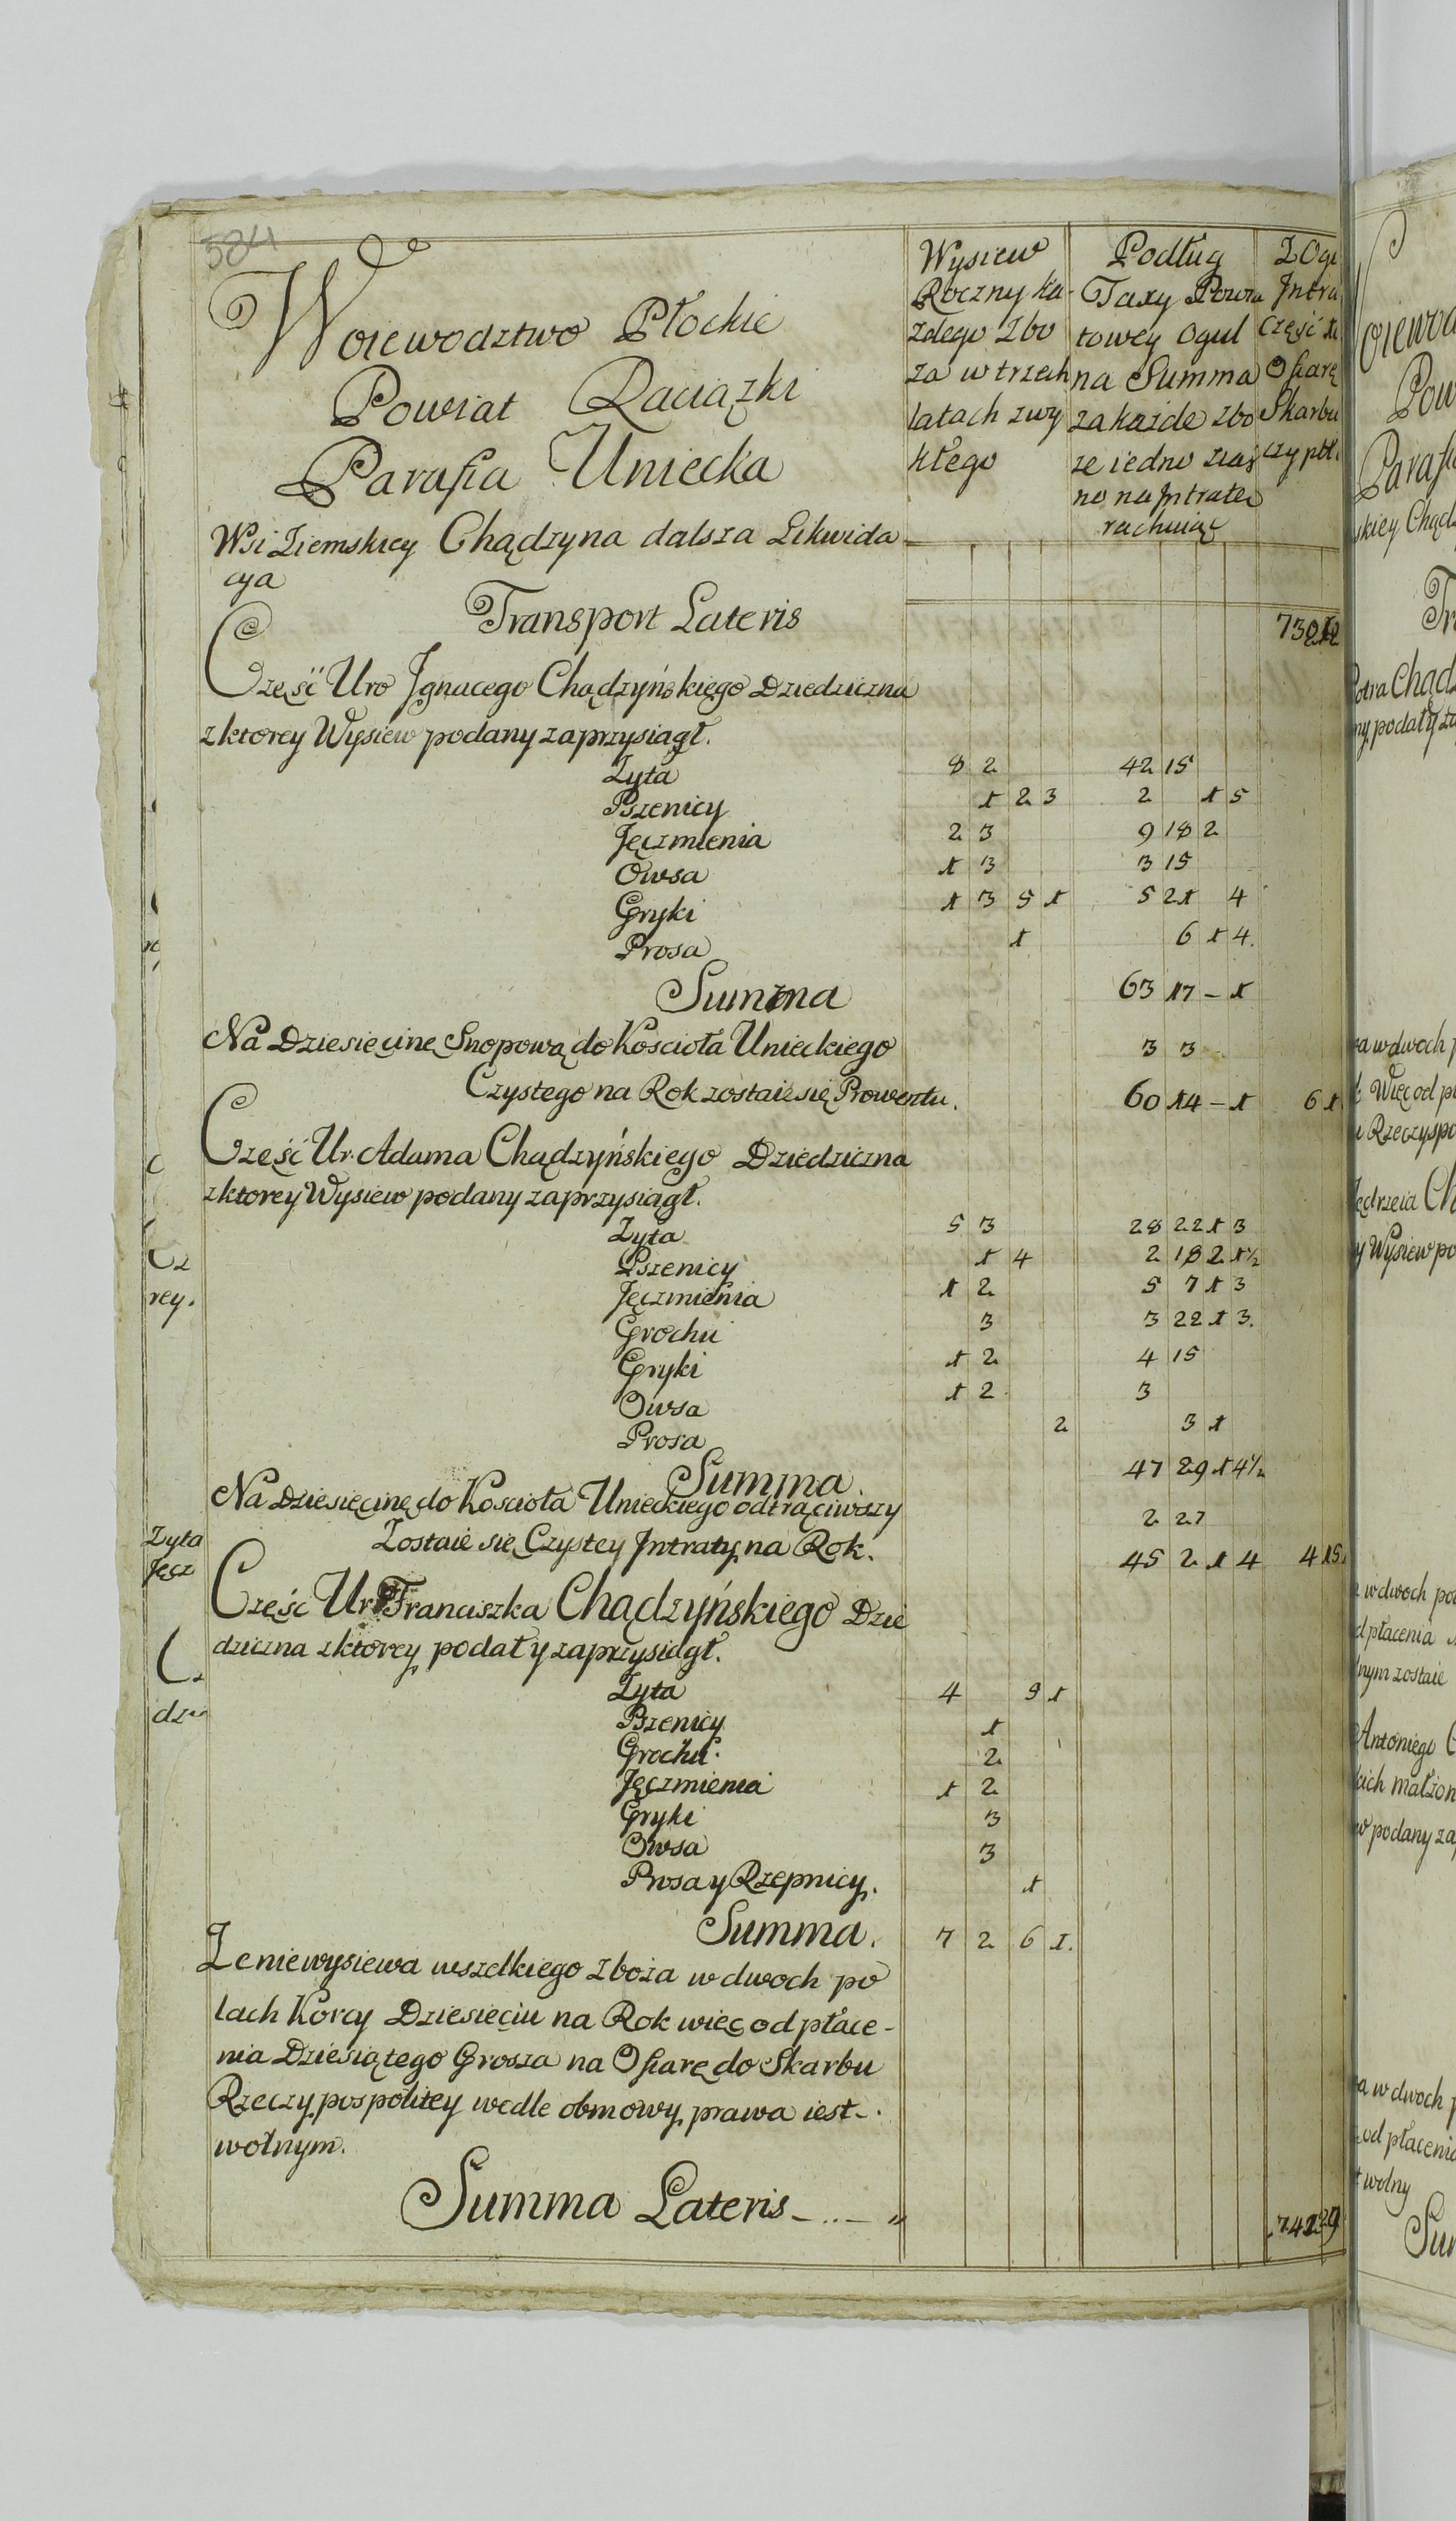 584
Woiewodztwo Płockie
Powiat Raciązki
Parafia Uniecka
Wsi Ziemskiey Chądzyna dalsza Likwida
cya
Wysiew
Roczny ka-
zdego zbo
za w trzech
latach zwy
kłego
Podług
Taxy Powia
towey ogul
na Summa
za kazde zbo
ze iedno ziar
no na Intrate
rachuiąc
Z Ogu
Intra
Część
Ofiarę
Skarbu
czyptt.
Transport Lateris
Część Uro Jgnacego Chądzyńskiego Dziedziczna
z ktorey Wysiew podany zaprzysiągł.
Zyta 8 2 42 15
Pszenicy 1 2 3 2 1 5
Jęczmienia 2 3 9 18 2
Owsa 1 3 3 15
Gryki 1 3 5 1 5 21 4
Prosa 1 6 1 4.
Summa 63 17 - 1
Na Dziesięcinę Snopową do Koscioła Unieckiego 3 3
Czystego na Rok zostaie się Prowentu. 60 14 - 1 6 1
Część Ur. Adama Chądzyńskiego Dziedziczna
z ktorey Wysiew podany zaprzysiągł.
Zyta 5 3 28 22 1 3
Pszenicy 1 4 2 18 2 1½
Jęczmienia 1 2 5 7 1 3
Grochu 3 3 22 1 3.
Gryki 1 2 4 15
Owsa 1 2 3
Prosa 2 3 1
Summa. 47 29 1 4½
Na Dziesięcinę do Koscioła Unieckiego odtrąciwszy 2 27
Zostaie się Czystey Jntraty na Rok. 45 2 1 4 4 15.
Część Ur Franciszka Chądzyńskiego Dzie
dziczna z ktorey podał y zaprzysiągł.
Zyta 4 9 1
Pszenicy 1
Grochu. 2
Jęczmienia 1 2
Gryki 3
Owsa 3
Prosa y Rzepnicy. 1
Summa. 7 2 6 1.
Ze niewysiewa wszelkiego zboza w dwoch po
lach Korcy Dziesięciu na Rok więc od płace-
nia Dziesiątego Grosza na Ofiarę do Skarbu
Rzeczypospolitey wedle obmowy prawa iest-.
wolnym.
Summa Lateris